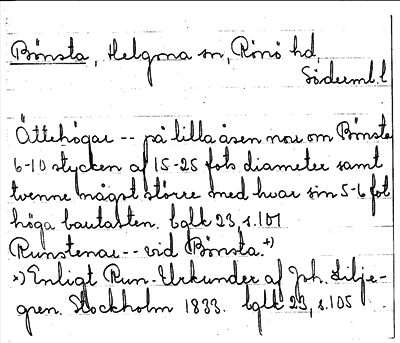 Bönsta, Helgona sn, Rönö hd,
Söderml. l
Ättehögar -- på lilla åsen norr om Bönsta
6-10 stycken af 15-25 fots diameter samt
tvenne något större med hvar sin 5-6 fot
höga bautasten. bglk 23, s.101
Runstenar -- vid Bönsta.*)
*) Enligt Run-Urkunder af Joh. Lilje-
gren. Stockholm 1833. bglk 23, s.105